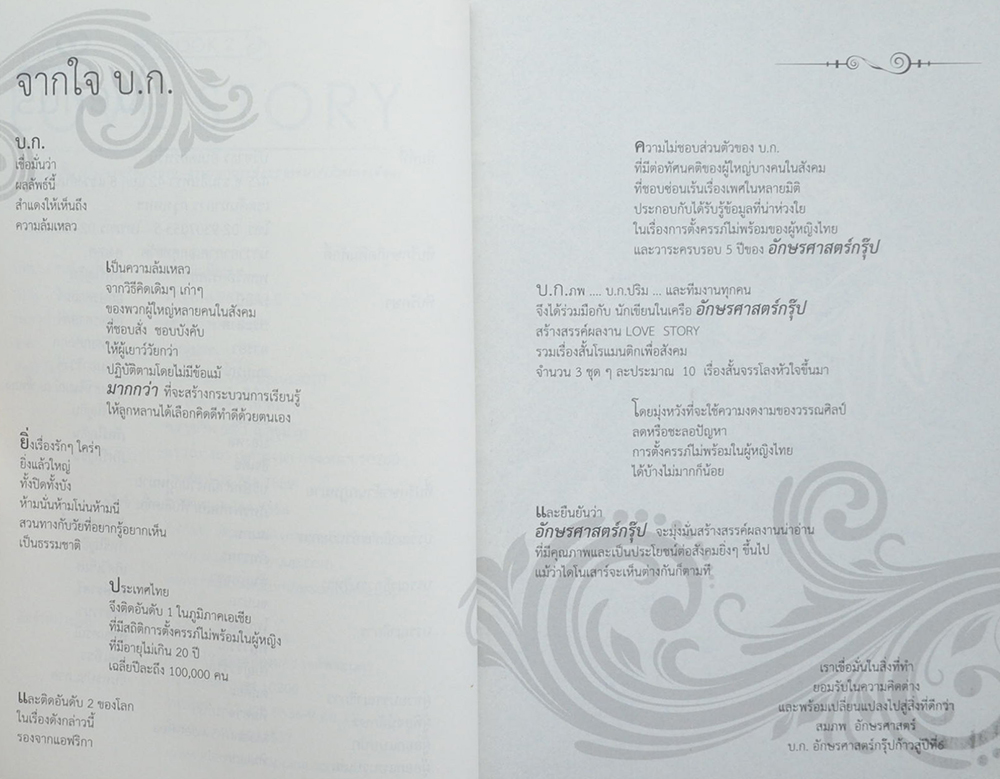 จากใจ บ.ก.
บ.ก.
เชื่อมั่นว่า
ผลลัพธ์นี้
สำแดงให้เห็นถึง
ความล้มเหลว
เป็นความล้มเหลว
จากวิธีคิดเดิมๆ เก่าๆ
ของพวกผู้ใหญ่หลายคนในสังคม
ที่ชอบสั่ง ชอบบังคับ
ให้ผู้เยาว์วัยกว่า
ปฏิบัติตามโดยไม่มีข้อแม้
มากกว่า ที่จะสร้างกระบวนการเรียนรู้
ให้ลูกหลานได้เลือกคิดดีทำดีด้วยตนเอง
ยิ่งเรื่องรักๆ ใคร่ๆ
ยิ่งแล้วใหญ่
ทั้งปิดทั้งบัง
ห้ามนั่นห้ามโน่นห้ามนี่
สวนทางกับวัยที่อยากรู้อยากเห็น
เป็นธรรมชาติ
ประเทศไทย
จึงติดอันดับ 1 ในภูมิภาคเอเชีย
ที่มีสถิติการตั้งครรภ์ไม่พร้อมในผู้หญิง
ที่มีอายุไม่เกิน 20 ปี
เฉลี่ยปีละถึง 100,000 คน
และติดอันดับ 2 ของโลก
ในเรื่องดังกล่าวนี้
รองจากแอฟริกา
ความไม่ชอบส่วนตัวของ บ.ก.
ที่มีต่อทัศนคติของผู้ใหญ่บางคนในสังคม
ที่ชอบซ่อนเร้นเรื่องเพศในหลายมิติ
ประกอบกับได้รับรู้ข้อมูลที่น่าห่วงใย
ในเรื่องการตั้งครรภ์ไม่พร้อมของผู้หญิงไทย
และวาระครบรอบ 5 ปีของ อักษรศาสตร์กรุ๊ป
บ.ก.ภพ .... บ.ก.ปริม ... และทีมงานทุกคน
จึงได้ร่วมมือกับ นักเขียนในเครือ อักษรศาสตร์กรุ๊ป
สร้างสรรค์ผลงาน LOVE STORY
รวมเรื่องสั้นโรแมนติกเพื่อสังคม
จำนวน 3 ชุด ๆ ละประมาณ 10 เรื่องสั้นจรรโลงหัวใจขึ้นมา
โดยมุ่งหวังที่จะใช้ความงดงามของวรรณศิลป์
ลดหรือชะลอปัญหา
การตั้งครรภ์ไม่พร้อมในผู้หญิงไทย
ได้บ้างไม่มากก็น้อย
และยืนยันว่า
อักษรศาสตร์กรุ๊ป จะมุ่งมั่นสร้างสรรค์ผลงานน่าอ่าน
ที่มีคุณภาพและเป็นประโยชน์ต่อสังคมยิ่งๆ ขึ้นไป
แม้ว่าไดโนเสาร์จะเห็นต่างกันก็ตามที
เราเชื่อมั่นในสิ่งที่ทำ
ยอมรับในความคิดต่าง
และพร้อมเปลี่ยนแปลงไปสู่สิ่งที่ดีกว่า
สมภพ อักษรศาสตร์
บ.ก. อักษรศาสตร์กรุ๊ปก้าวสู่ปีที่6